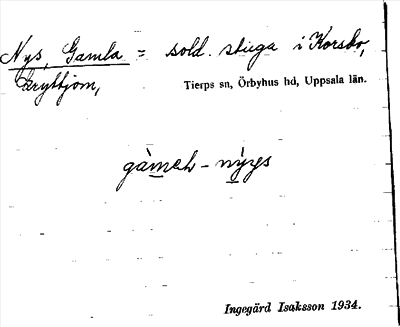 Nys, Gamla = sold. stuga i Korsbo,
Grytbjorn, Tierps sn, Örbyhus hd, Uppsala län.
gàmah - nỳys
Ingegärd Isaksson 1934.